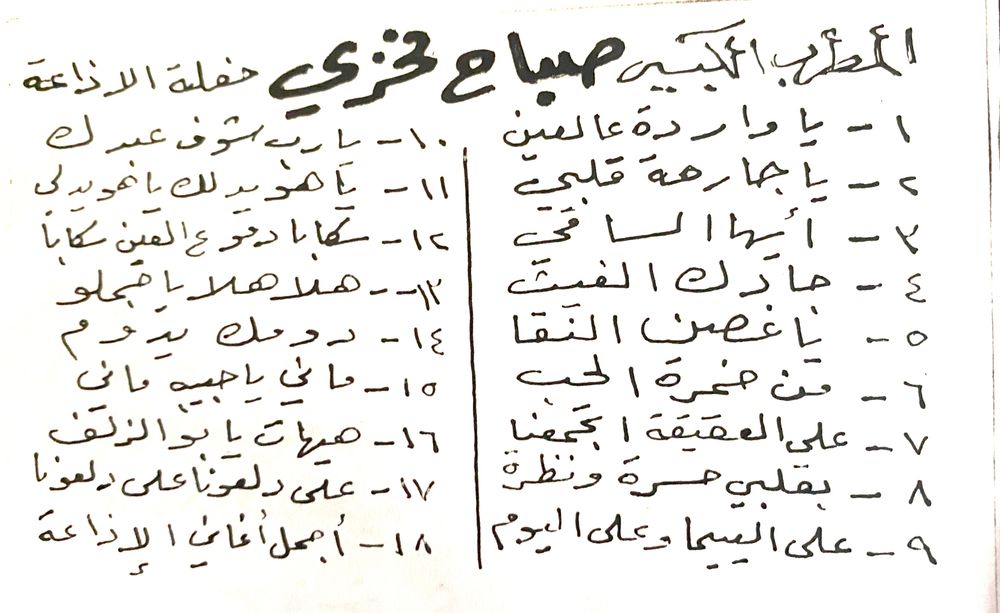 المطرب الكبير صباح فخري حفلة الاذاعة
١ - يا واردة عالعين
٢ - يا جارحة قلبي
٣ - أيها الساقي
٤ - جادك الغيث
٥ - يا غصن النقا
٦ - من خمرة الحب
٧ - على العقيقة اجتمعنا
٨ - بقلبي حسرة ونظرة
٩ - على اليوم وعلى اليوم
١٠ - يا رب شوف عبدك
١١ - يا هويدلك يا هويدلي
١٢ - سكابا دموع العين سكابا
١٣ - هلا هلا يا جملو
١٤ - دومك يدوم
١٥ - ماني يا حبيبه ماني
١٦ - هيهات يا بو الزلف
١٧ - على دلعونا على دلعونا
١٨ - أجمل أغاني الإذاعة